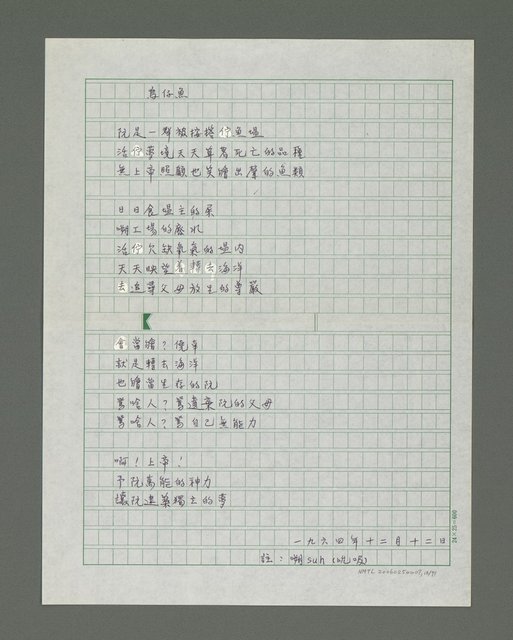 魚
阮是一群被按搭佇魚塭
活佇夢境天天算著死亡的品種
無上帝照顧也笑膾出聲的魚類
日日食塭主的屎
嗍工場的廢水
活佇欠缺氧氣的塭內
天天映望著轉去海洋
去追尋父母放生的尊嚴
會當膾?僥幸
就是轉去海洋
也膾當生存的阮
罵啥人?罵遺棄阮的父母
罵啥人?罵自己無能力
啊!上帝!
予阮萬能的神力
讓阮進築獨立的夢
一九六四年十二月十二日
註:嗍suh(吮吸)
24×25=600